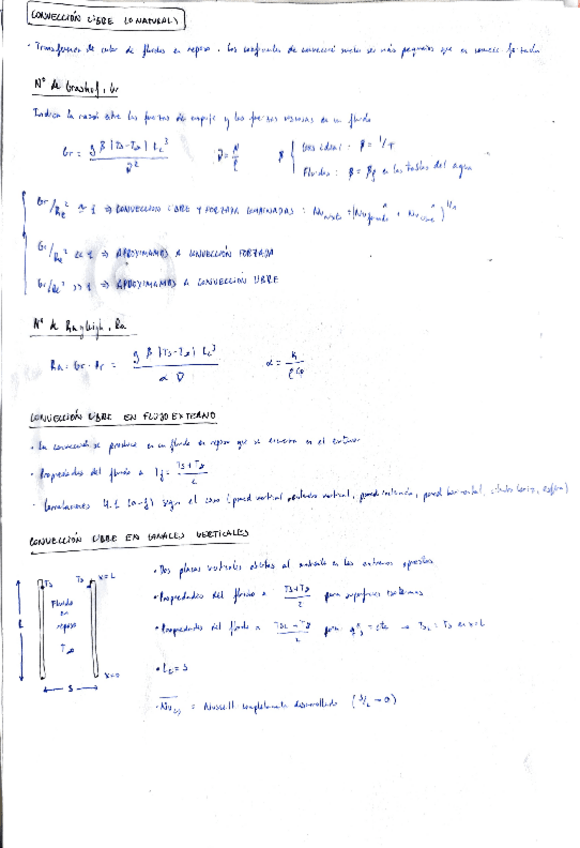 CONVECCIÓN LIBRE (O NATURAL)
· Transferencia de calor de fluidos en reposo. Los coeficientes de convección suelen ser más pequeños que en convec. forzada
Nº de Grashof, Gr
Indica la razón entre las fuerzas de empuje y las fuerzas viscosas en un fluido
Gr = g β |Ts-T∞| Lc³ / ν²   ν = μ/ρ   β { Gas ideal: β = 1/T
Fluidos: β = βf en las tablas del agua
Gr/Re² ≈ 1 ⇒ CONVECCIÓN LIBRE Y FORZADA COMBINADAS:
Gr/Re² << 1 ⇒ APROXIMAMOS A CONVECCIÓN FORZADA
Gr/Re² >> 1 ⇒ APROXIMAMOS A CONVECCIÓN LIBRE
Nº de Rayleigh, Ra
Ra = Gr · Pr = g β |Ts-T∞| Lc³ / α ν   α = k / ρ Cp
CONVECCIÓN LIBRE EN FLUJO EXTERNO
· La convección se produce en un fluido en reposo que se encuentra en el entorno
· Propiedades del fluido a Tf = Ts+T∞ / 2
· Correlaciones 4.1 (a-f) según el caso (pared vertical, cilindro vertical, pared inclinada, pared horizontal, cilindro horiz, esfera)
CONVECCIÓN LIBRE EN CANALES VERTICALES
· Dos placas verticales abiertas al ambiente en los extremos opuestos
Ts Ts x=L
Fluido
en
reposo
T∞
L
x=0
S
· Propiedades del fluido a Ts+T∞ / 2 para superficies isotermas
· Propiedades del fluido a / 2 para q"s = cte → TsL = Ts en x=L
· Lc = S
= Nusselt completamente desarrollado (S/L → 0)